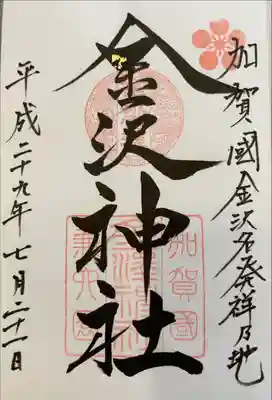 加賀國金沢名発祥乃地
金沢神社
加賀國
金澤神社
兼六園
平成二十九年七月二十一日